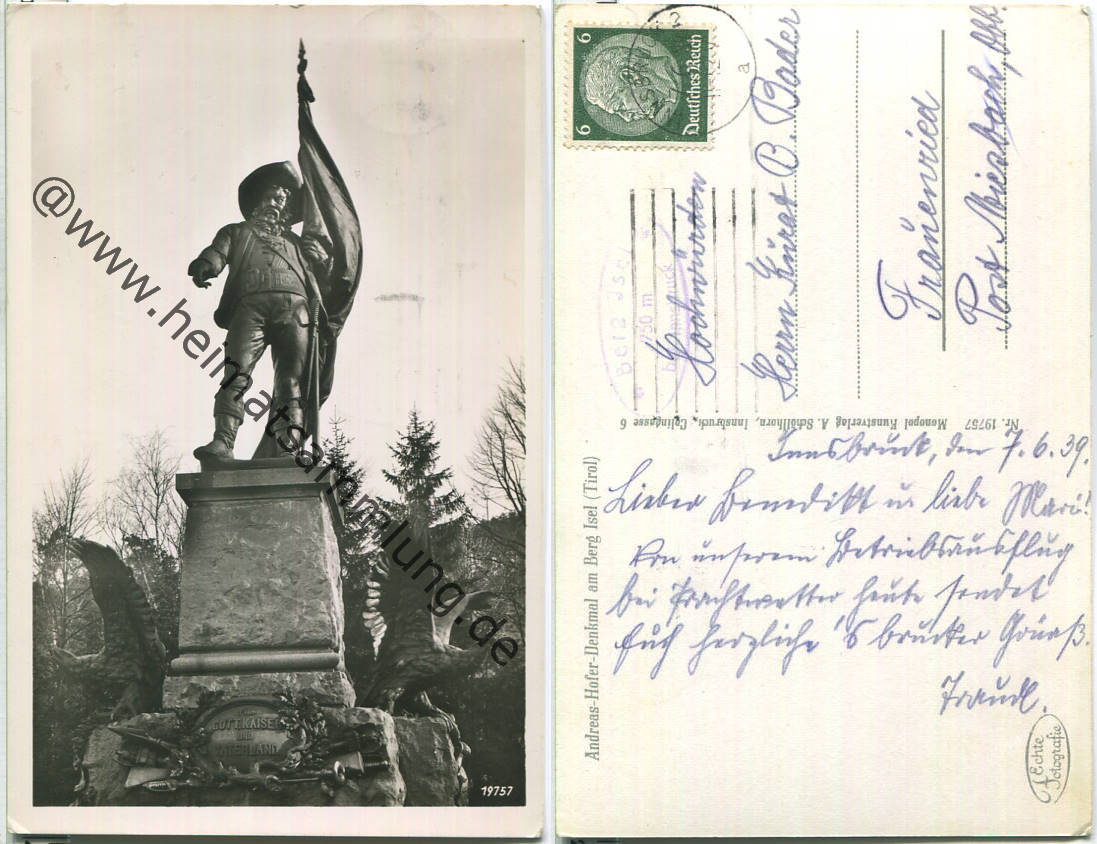 @www.heimatsammlung.de
Für
GOTT, KAISER
und
VATERLAND
19757
6
Deutsches Reich
6
a
Berg Isel
750 m
Hochwürden
Herrn Kurat B. Bader
Frauenried
Post Miesbach, Obb.
Nr. 19757
Monopol Kunstverlag A. Schöllhorn, Innsbruck, Colingasse 6
Andreas-Hofer-Denkmal am Berg Isel (Tirol)
Innsbruck, den 7.6.39.
Lieber Benedikt u. liebe Mari!
Von unserem Betriebsausflug
bei Prachtwetter heute sendet
Euch herzliche 'sbrucker Grüaß.
Traudl.
Echte
Fotografie